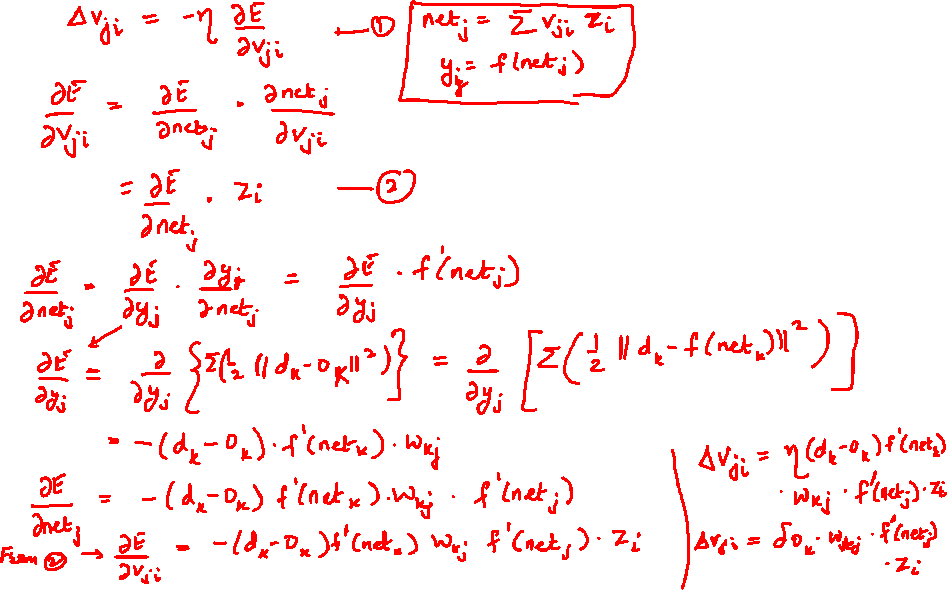 Δv_ji = -η ∂E/∂v_ji — ①
net_j = Σ v_ji z_i
y_j = f(net_j)
∂E/∂v_ji = ∂E/∂net_j · ∂net_j/∂v_ji
= ∂E/∂net_j · z_i — ②
∂E/∂net_j = ∂E/∂y_j · ∂y_j/∂net_j = ∂E/∂y_j · f'(net_j)
∂E/∂y_j = ∂/∂y_j {Σ(1/2 ||d_k - o_k||²)} = ∂/∂y_j [Σ(1/2 ||d_k - f(net_k)||²)]
= -(d_k - o_k) · f'(net_k) · w_kj
∂E/∂net_j = -(d_k - o_k) f'(net_k) · w_kj · f'(net_j)
From ② → ∂E/∂v_ji = -(d_k - o_k) f'(net_k) w_kj f'(net_j) · z_i
Δv_ji = η(d_k - o_k) f'(net_k)
· w_kj · f'(net_j) · z_i
Δv_ji = δo_k · w_kj · f'(net_j)
· z_i